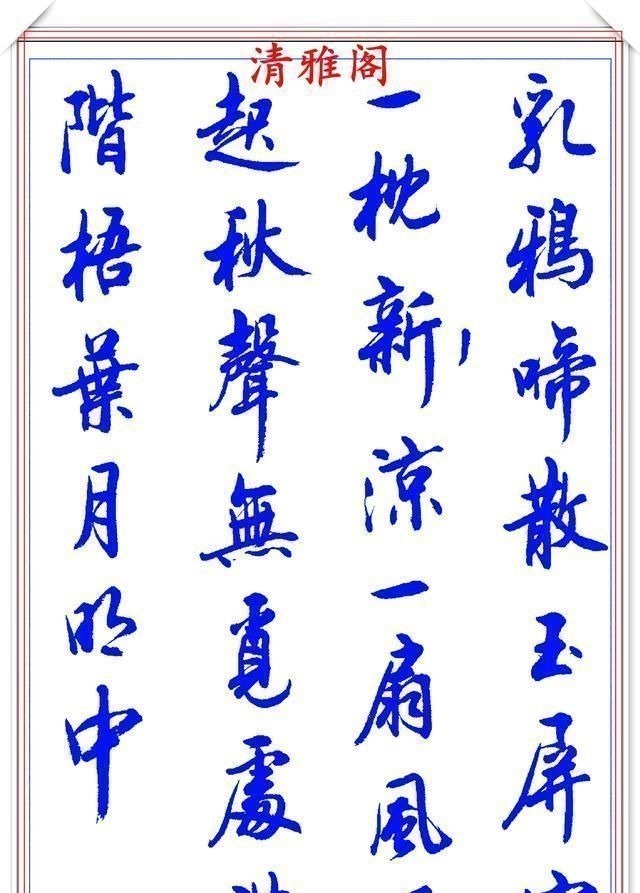 清雅阁
乳鴉啼散玉屏
一枕新涼一扇風
起秋聲無覓處
階梧葉月明中